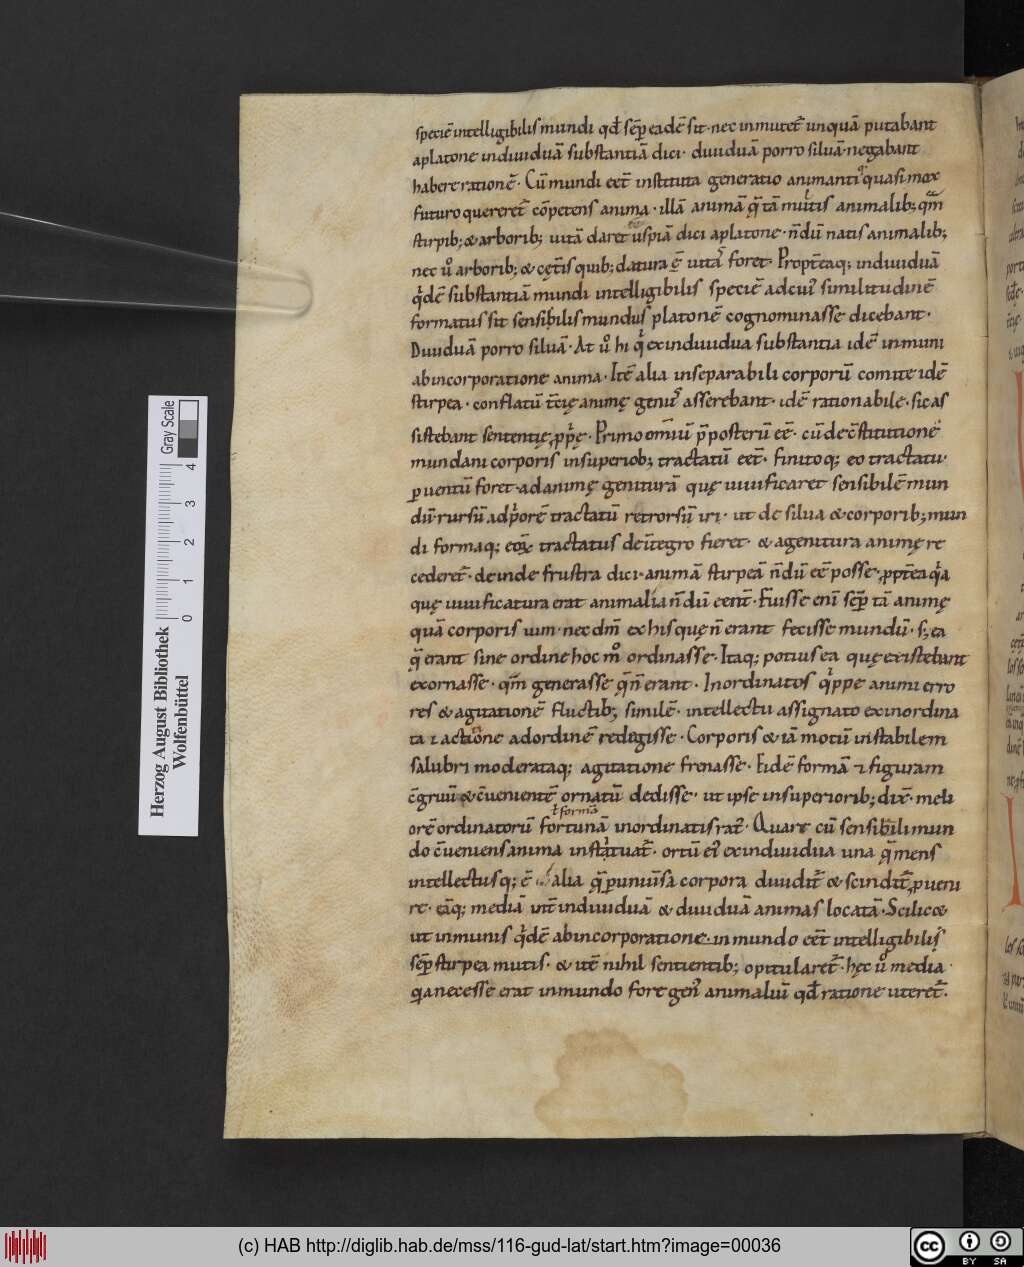 speciē intelligibilis mundi qđ sēp eadē sit· nec inmutet̄ unquā putabant
aplatone indiuiduā substantiā dici· diuiduā porro siluā· negabant
habere rationē· Cū mundi eēt instituta generatio animanti quasi mox
futuro quereret̄ cōpetens anima· illā animā q̄ tā mutis animalib; qm̄
stirpib; & arborib; uitā daret uspiā dici aplatone· n̄dū natis animalib;
nec u͛o arborib; & cęt̄is quib; datura ē uitā foret· Propt̄eaq; indiuiduā
q͛dē substantiā mundi intelligibilis speciē ad cui͛ similitudinē
formatus sit sensibilis mundus platonē cognominasse dicebant·
Diuiduā porro siluā· At u͛o hi q͛ exindiuidua substantia idē inmuni
abincorporatione anima· Itē alia inseparabili corporū comite idē
stirpea· conflatū t̄cię animę geni͛ asserebant· idē rationabile· sic as
sistebant sententię pp͛ę· Primo om̄iū p̄posterū eē· cū de c̄stitutione
mundani corporis insuperiob; tractatū eēt· finitoq; eo tractatu·
puentū foret· ad animę geniturā quę uiuificaret sensibilē mun
dū· rursū ad p͛orē tractatū retrorsū iri· ut de silua & corporib; mun
di formaq; eoꝝ tractatus deīt̄egro fieret· & agenitura animę re
cederet̄· deinde frustra dici· animā stirpeā n̄dū eē posse· ppt̄ea q͛a
quę uiuificatura erat animalia n̄dū eent̄· Fuisse eni sēp tā animę
quā corporis uim· nec dm̄ ex his quę n̄ erant fecisse mundū· s; ea
q̄ erant sine ordine hoc m͛o ordinasse· Itaq; potius ea quę existebant
exornasse· qm̄ generasse q̄ n̄ erant· Inordinatos q͛ppe animi erro
res & agitationē fluctib; similē· intellectu assignato exinordina
ta ı actione ad ordinē redegisse· Corporis & iā motū instabilem
salubri moderataq; agitatione frenasse· Eidē formā ⁊ figuram
c̄gruū & c̄uenientē ornatū dedisse· ut ipse insuperiorib; dix̄· meli
ł formā
orē ordinatorū fortunā inordinatis rat͛· Quare cū sensibili mun
do c̄ueniens anima instituat̄· ortū ei͛ exindiuidua una q̄ mens
intellectusq; ē alia q̄ puniūsa corpora diuidit̄ & scindit̄ pueni
re· eāq; mediā int̄ indiuiduā & diuiduā animas locatā· Scilic&
ut inmunis q͛dē abincorporatione· in mundo eēt intelligibilis
sēp stirpea mutis· & itē nihil sentientib; opitularet̄· hęc u͛o media
q͛a necesse erat inmundo fore gen͛ animaliū qđ ratione uteret̄·
Herzog August Bibliothek
Wolfenbüttel
Gray Scale
0 1 2 3 4
(c) HAB http://diglib.hab.de/mss/116-gud-lat/start.htm?image=00036
cc BY SA